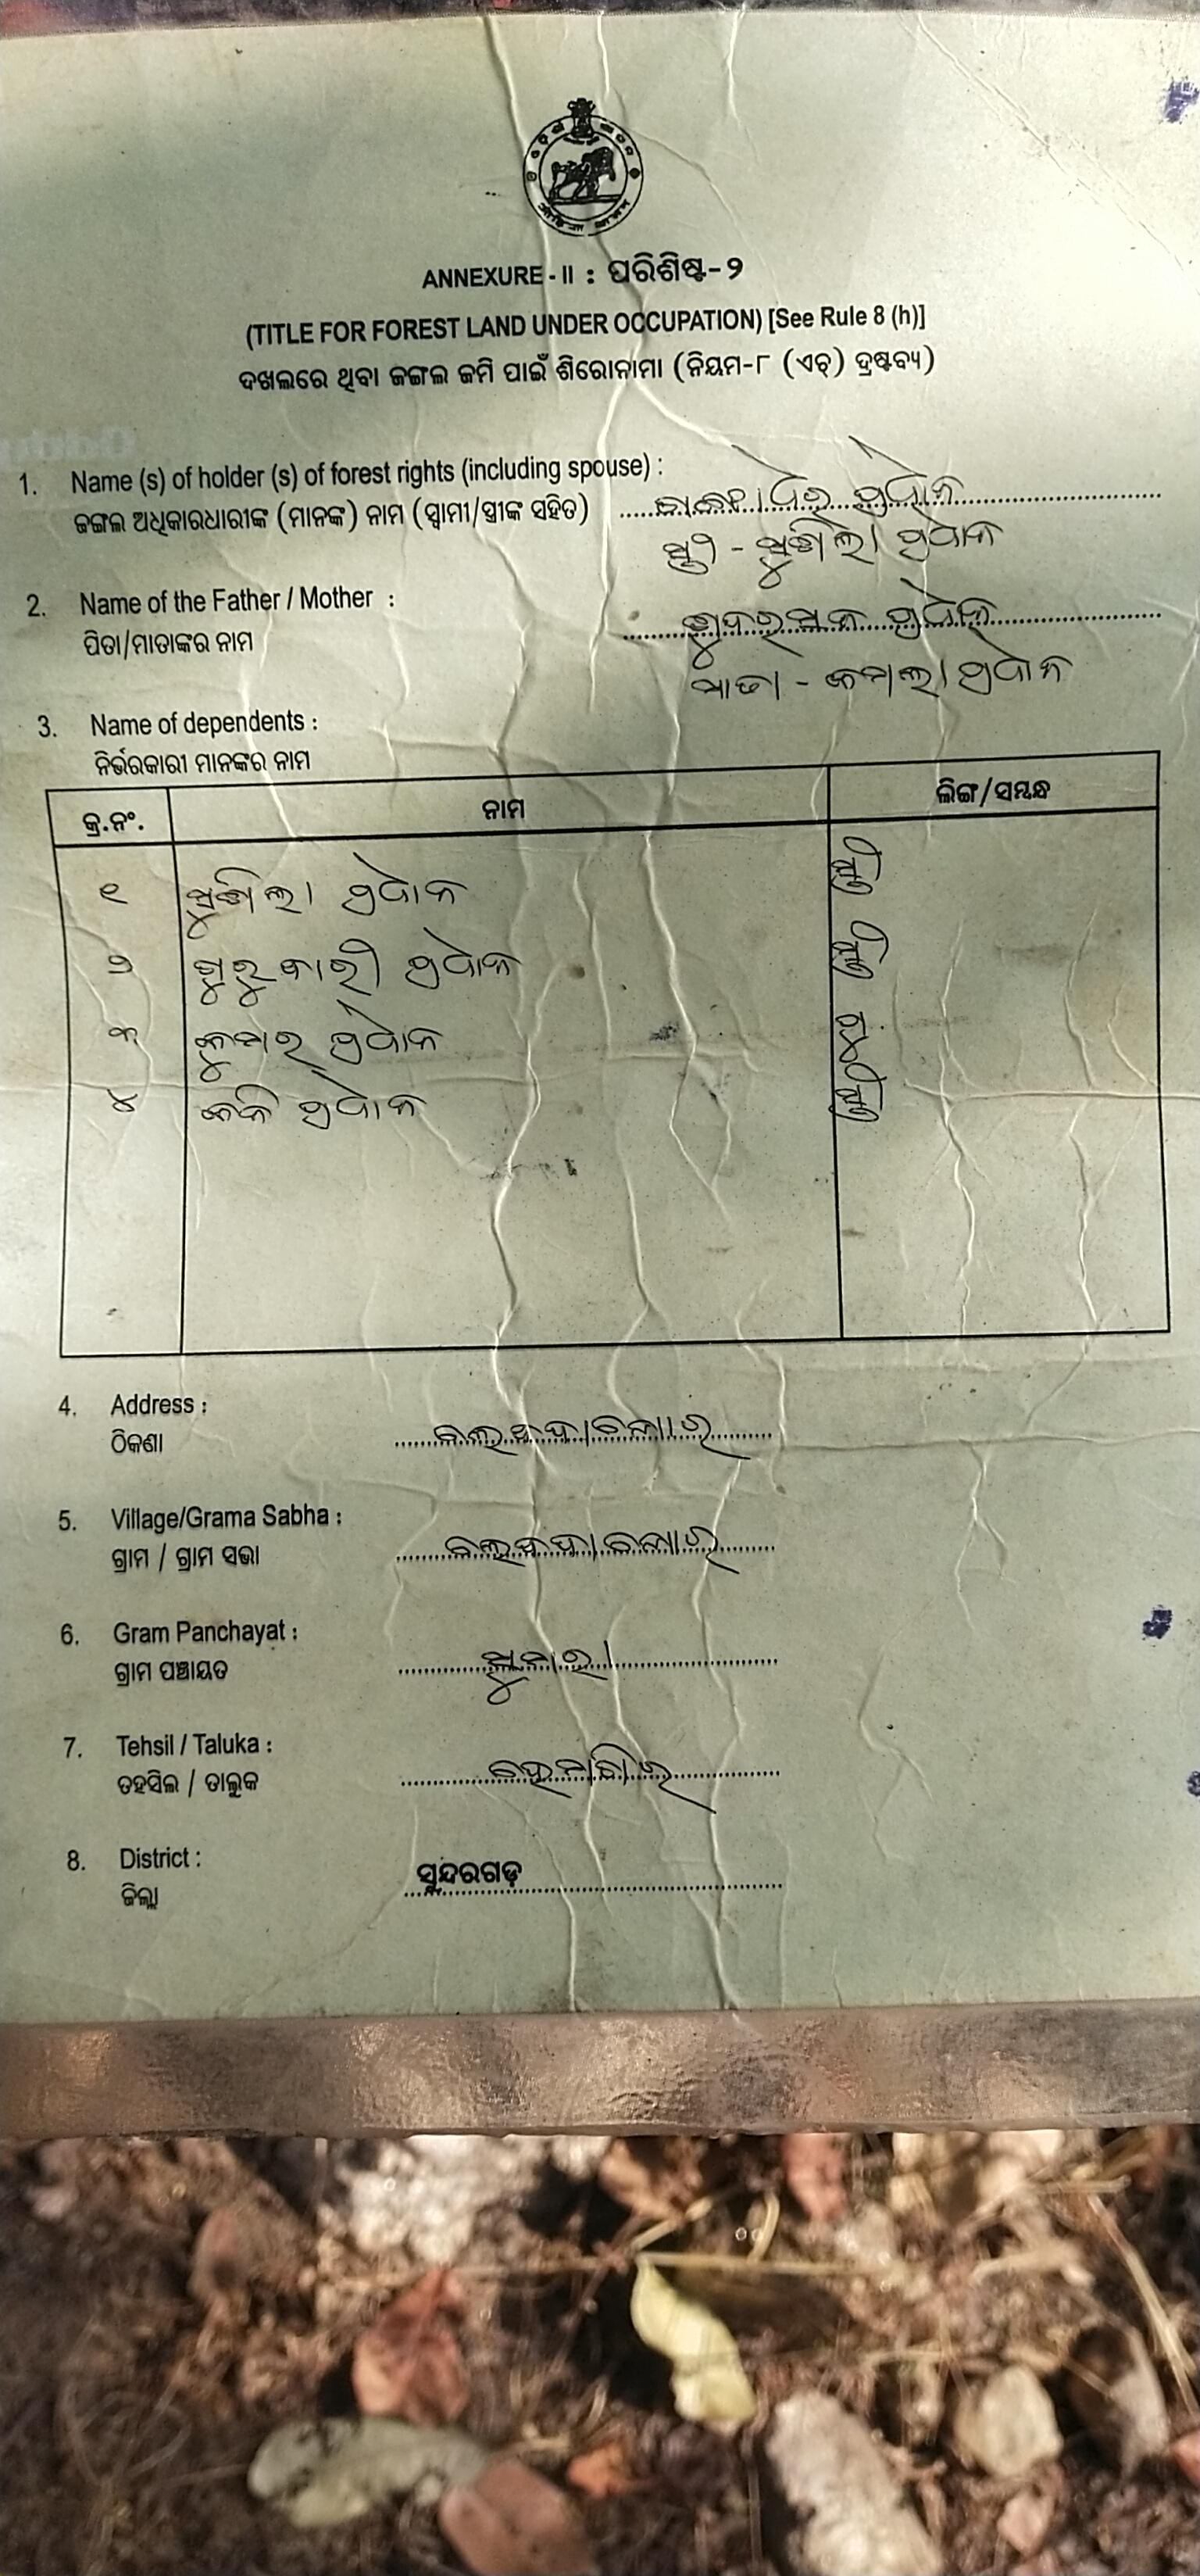 ANNEXURE - II : ପରିଶିଷ୍ଟ-୨
(TITLE FOR FOREST LAND UNDER OCCUPATION) [See Rule 8 (h)]
ଦଖଲରେ ଥିବା ଜଙ୍ଗଲ ଜମି ପାଇଁ ଶିରୋନାମା (ନିୟମ-୮ (ଏଚ୍) ଦ୍ରଷ୍ଟବ୍ୟ)
1. Name (s) of holder (s) of forest rights (including spouse) :
ଜଙ୍ଗଲ ଅଧିକାରଧାରୀଙ୍କ (ମାନଙ୍କ) ନାମ (ସ୍ୱାମୀ/ସ୍ତ୍ରୀଙ୍କ ସହିତ) ପ୍ରଧାନ
ସ୍ତ୍ରୀ - ସୁଶିଲା ପ୍ରଧାନ
2. Name of the Father / Mother :
ପିତା/ମାତାଙ୍କର ନାମ ପ୍ରଧାନ
ମାତା - କମଲା ପ୍ରଧାନ
3. Name of dependents :
ନିର୍ଭରକାରୀ ମାନଙ୍କର ନାମ
କ୍ର.ନଂ. ନାମ ଲିଙ୍ଗ/ସମ୍ବନ୍ଧ
୧ ସୁଶିଲା ପ୍ରଧାନ ସ୍ତ୍ରୀ
୨ ଗୁରୁବାରୀ ପ୍ରଧାନ ସ୍ତ୍ରୀ
୩ କୁମାର ପ୍ରଧାନ ପୁଂ
୪ ପ୍ରଧାନ ସ୍ତ୍ରୀ
4. Address :
ଠିକଣା
5. Village/Grama Sabha :
ଗ୍ରାମ / ଗ୍ରାମ ସଭା
6. Gram Panchayat :
ଗ୍ରାମ ପଞ୍ଚାୟତ
7. Tehsil / Taluka :
ତହସିଲ / ତାଲୁକ ହେମଗିର
8. District :
ଜିଲ୍ଲା ସୁନ୍ଦରଗଡ଼